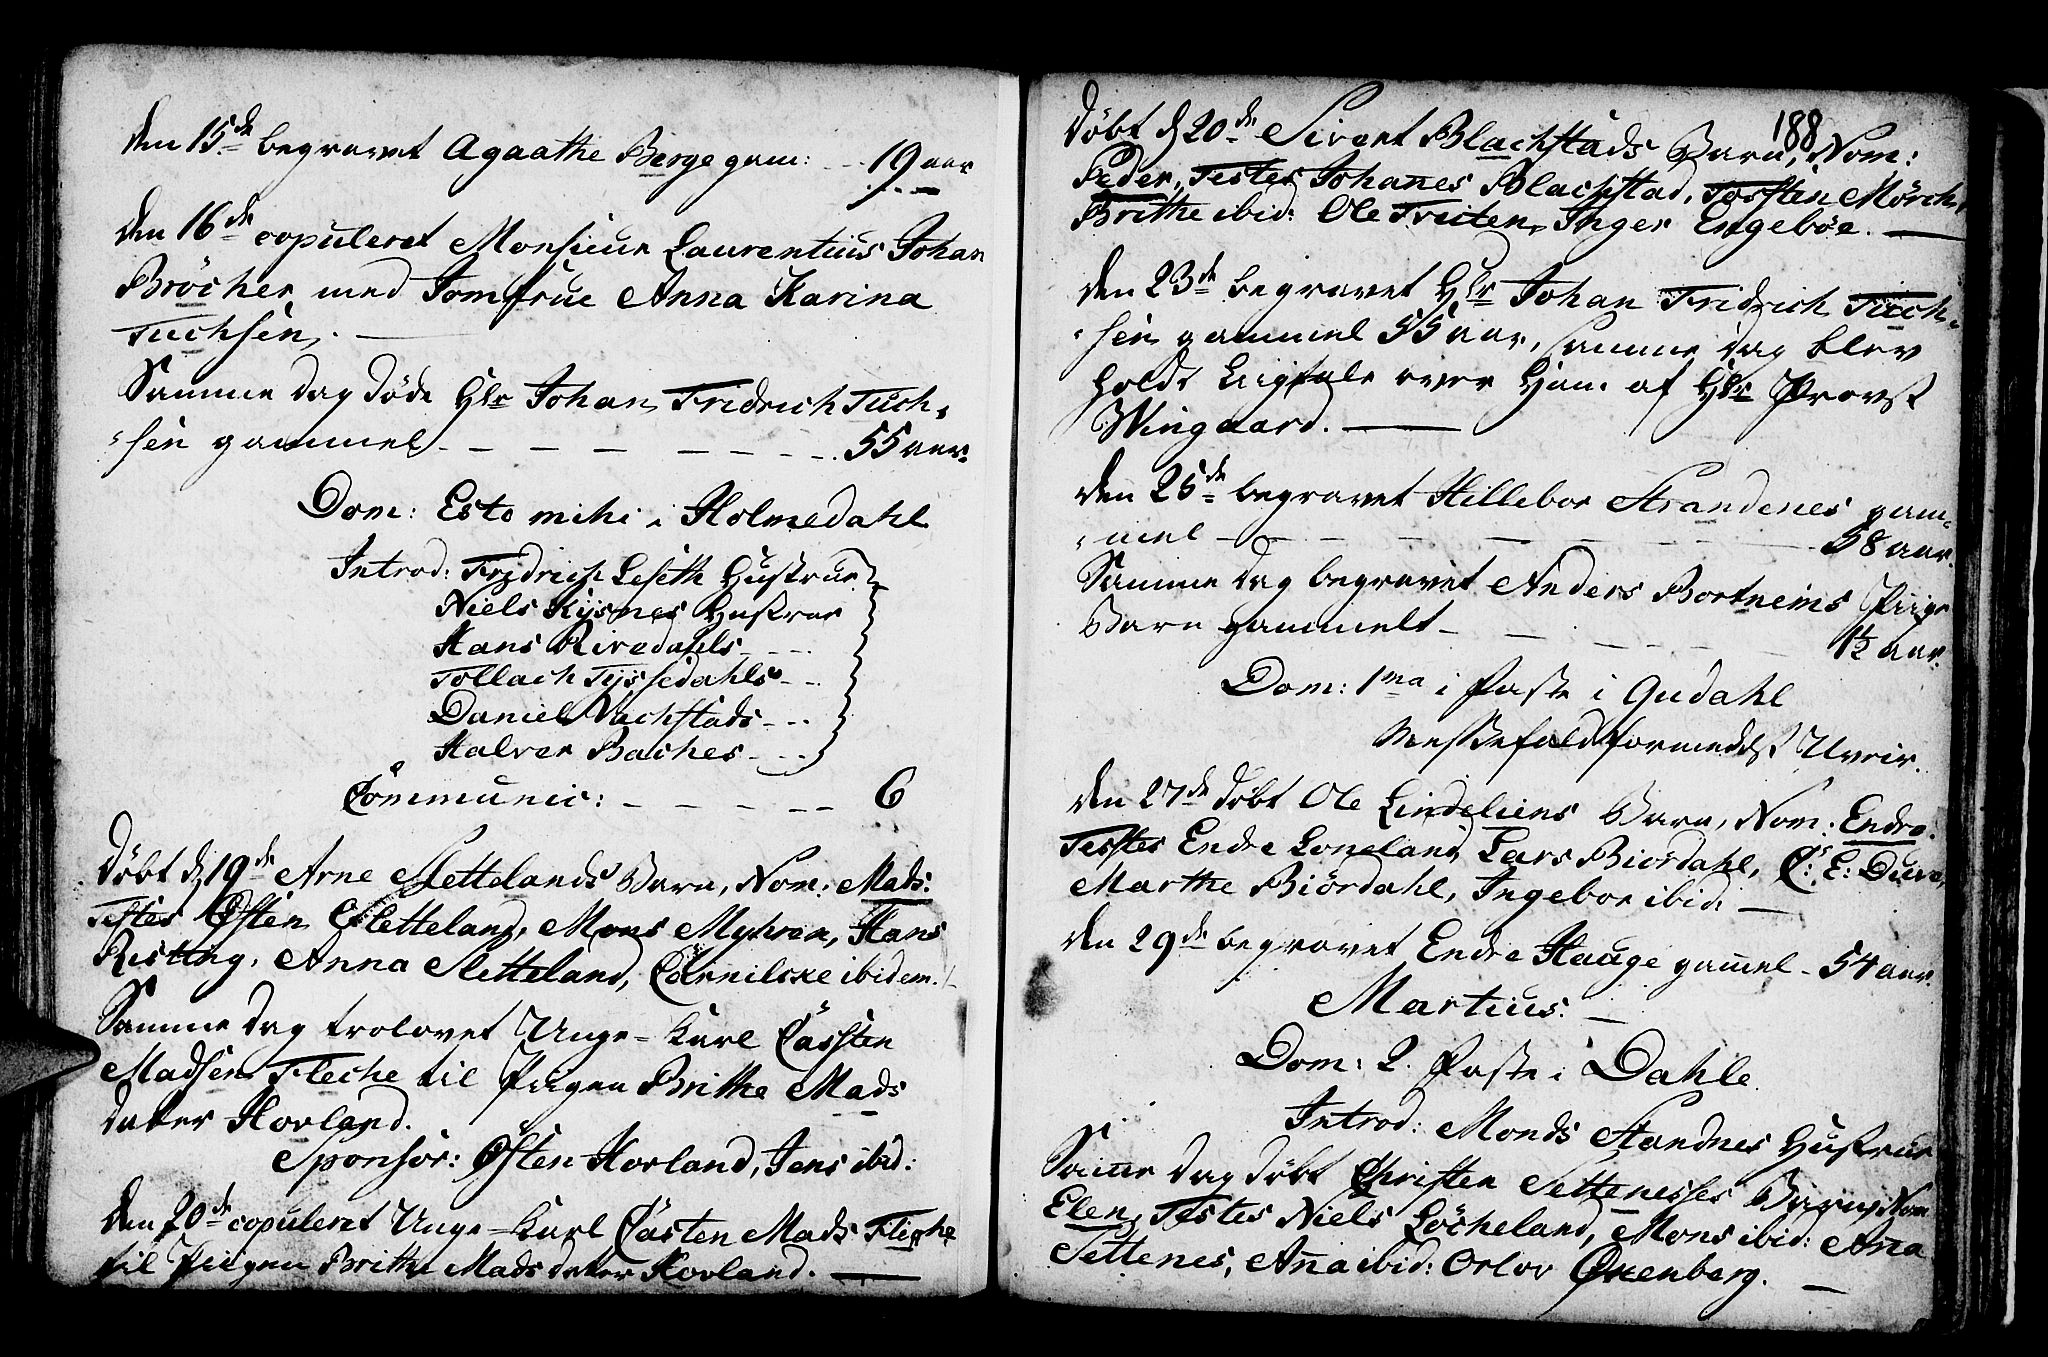 Den 15de begravet Agaathe Berge gam: -- 19 aar
Den 16de copuleret Monsieur Laurentius Johan
Bröcher med Jomfrue Anna Karina
Tuchsen. —
Samme Dag döde Hlr Johan Fridrich Tuch-
-sen gammel - - - - - - - 55 aar.
Dom: Esto mihi i Holmedahl
Introd: Fridrich Leseth Hustrue
Niels Kysnes Hustrue
Hans Rivedahls - - -
Tollach Tyssedahls - -
Daniel Vachstads - - -
Halver Baches - - -
Communic: - - - - - 6
Döbt d 19de Arne Slettelands Barn, Nom: Mads:
Testes Østen Sletteland, Mons Myhren, Hans
Risting, Anna Sletteland, Cornilske ibidem.
Samme Dag trolovet Unge-Karl Casten
Madsen Fleche til Pigen Brithe Mads
dater Hovland.
Sponsor: Østen Hovland, Jens ibid:
Den 20de copuleret Unge-Karl Casten Mads Fleche
til Piigen Brithe Madsdater Hovland. —
188
Döbt d 20de Sivert Blachstads Barn, Nom:
Peder, Testes Johanes Blachstad, Torsten Mörch,
Brithe ibid: Ole Trulten, Inger Engeböe. —
Den 23de begravet Hlr Johan Fridrich Tuch-
-sen gammel 55 aar, samme Dag blev
holdt Liigtale over Ham af Hlr Provst
Wingaard. —
Den 25de begravet Hillebor Strandenes gam-
-mel - - - - - - - 58 aar.
Samme Dag begravet Anders Bortneims Piige
Barn gammelt - - - - - 1½ aar.
Dom: 1ma i Faste i Gudahl
Messefald formedelst Uveir.
Den 27de döbt Ole Lindeliens Barn, Nom: Endre.
Testes Endre Loneland, Lars Biördahl, C: E: Due,
Marthe Biördahl, Ingebor ibid: —
Den 29de begravet Endre Hauge gamel - 54 aar.
Martius: —
Dom: 2. Faste i Dahle
Introd: Monds Standnes Hustrue
Same Dag döbt Christen Settenesses Barn, Nom
Elen, Testes Niels Löcheland, Mons ibid: Anna
Settenes, Ana ibid: Orlov Øxenberg. —